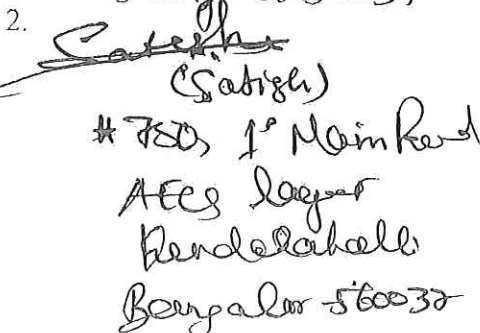 2.
Satish
(Satish)
# 780, 1st Main Road
AECS Layout
Kundalahalli
Bangalore - 560037